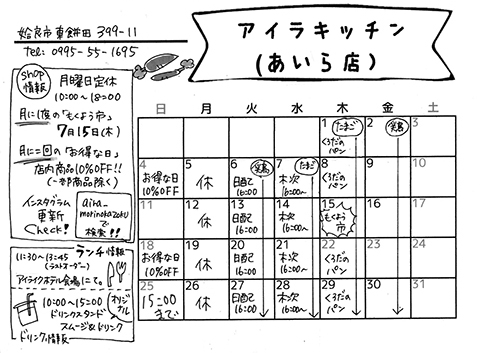 姶良市東餅田399-11
tel: 0995-55-1695
アイラキッチン
(あいら店)
shop情報
月曜日定休
10:00~18:00
月に1度の「もくよう市」
7月15日(木)
月に二回の「お得な日」
店内商品10%OFF!!
(一部商品除く)
インスタグラム
更新
Check!
aira_
morinokazoku
で
検索!!
ランチ情報
11:30~13:45
(ラストオーダー)
アイライクホテル会場にて。
10:00~15:00
オリジナル
ドリンクスタンド
スムージー&ドリンク
ドリンク情報
日 月 火 水 木 金 土
1 たまご 2 3
くろだの
パン
4 5 6 7 たまご 8 9 10
お得な日
10%OFF
休
日配
16:00
木次
16:00~
くろだの
パン
11 12 13 14 15 16 17
休
日配
16:00
木次
16:00~
もくよう
市
18 19 20 21 22 23 24
お得な日
10%OFF
休
日配
16:00
木次
16:00~
くろだの
パン
25 26 27 28 29 30 31
15:00
まで
休
日配
16:00
木次
16:00~
くろだの
パン